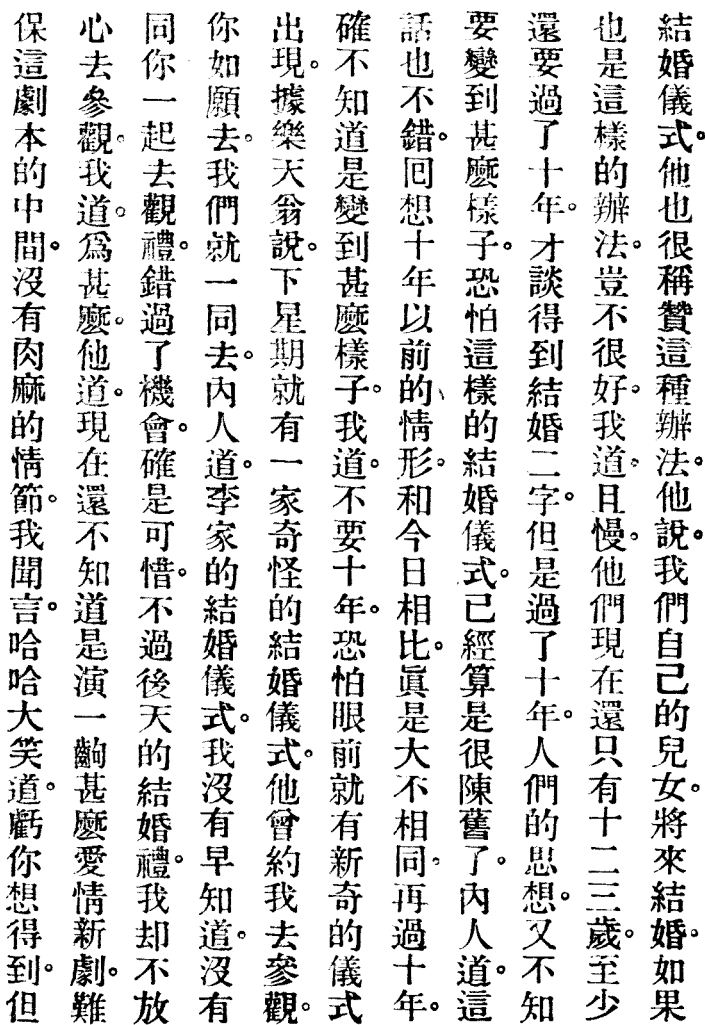 結婚儀式。他也很稱贊這種辦法。他說。我們自己的兒女。將來結婚。如果
也是這樣的辦法。豈不很好。我道。且慢。他們現在還只有十二三歲。至少
還要過了十年。才談得到結婚二字。但是過了十年。人們的思想。又不知
要變到甚麼樣子。恐怕這樣的結婚儀式。已經算是很陳舊了。內人道。這
話也不錯。回想十年以前的情形。和今日相比。眞是大不相同。再過十年。
確不知道是變到甚麼樣子。我道。不要十年。恐怕眼前就有新奇的儀式
出現。據樂天翁說。下星期就有一家奇怪的結婚儀式。他曾約我去參觀。
你如願去。我們就一同去。內人道。李家的結婚儀式。我沒有早知道。沒有
同你一起去觀禮。錯過了機會。確是可惜。不過後天的結婚禮。我却不放
心去參觀。我道。爲甚麼。他道。現在還不知道是演一齣甚麼愛情新劇。難
保這劇本的中間。沒有肉麻的情節。我聞言。哈哈大笑道。虧你想得到。但